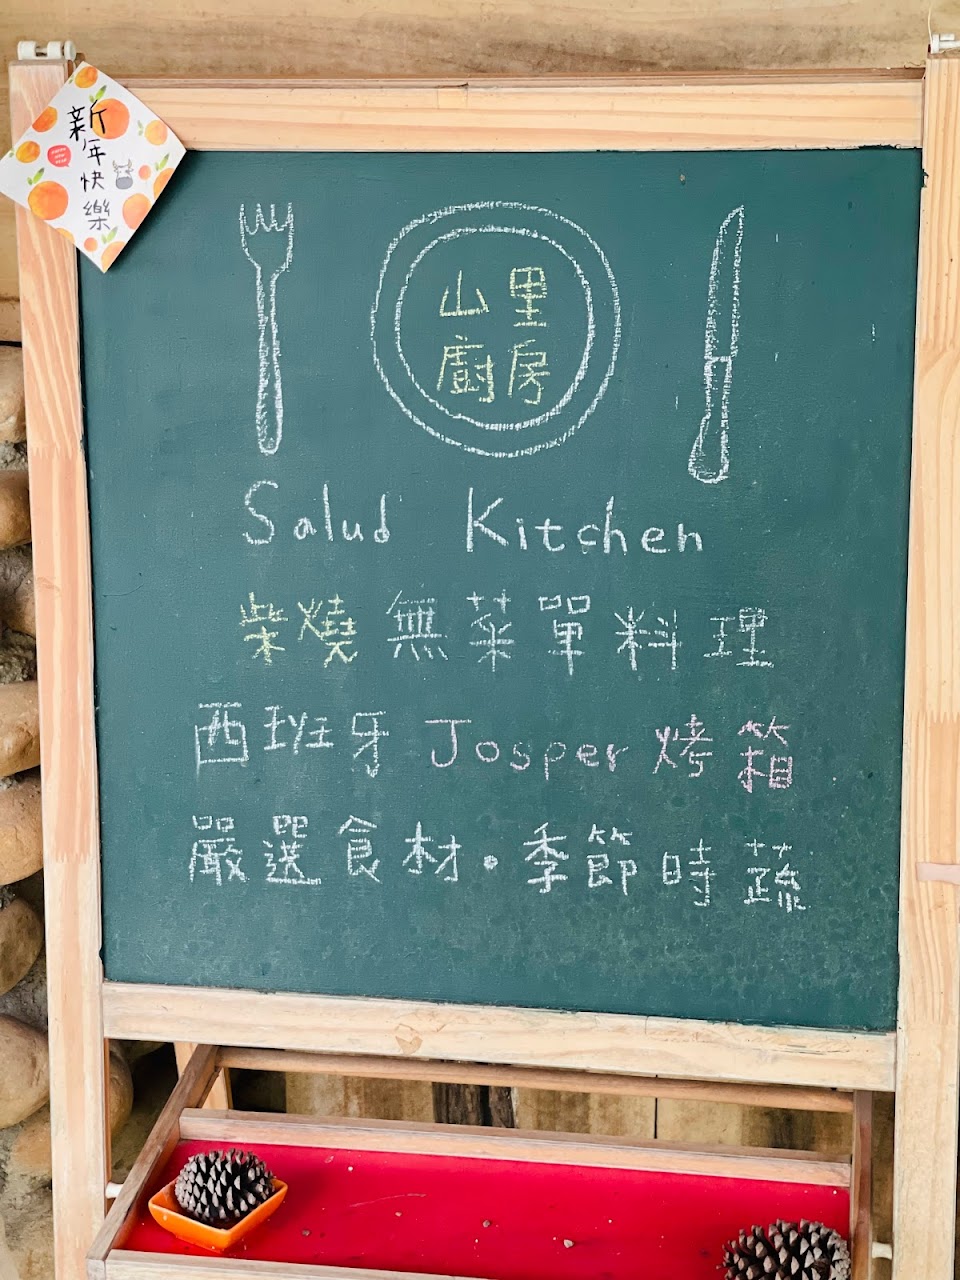 新年快樂
山里
廚房
Salud Kitchen
柴燒無菜單料理
西班牙 Josper 烤箱
嚴選食材・季節時蔬